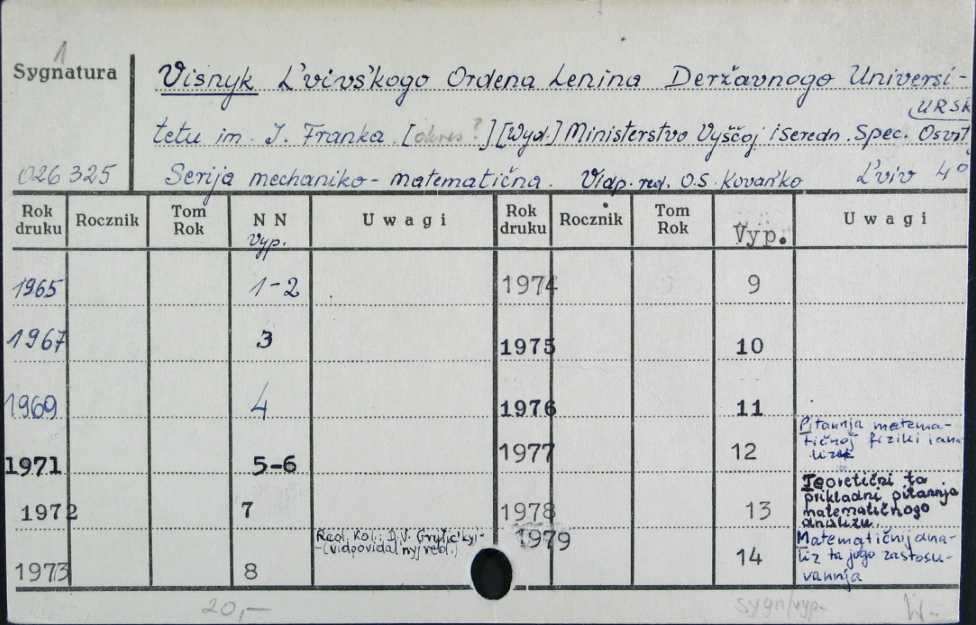 1
Sygnatura
Visnyk L'vivs'kogo Ordena Lenina Deržavnogo Universi-
URSR
tetu im. I. Franka. [okres?] [Wyd.] Ministerstvo Vyščoj i seredn. Spec. Osvity
026325 Serija mechaniko-matematična. Vidp. red. O.S. Kovan'ko L'viv 4°
Rok druku Rocznik Tom Rok NN Vyp. Uwagi Rok druku Rocznik Tom Rok Vyp. Uwagi
1965 1-2 1974 9
1967 3 1975 10
1969 4 1976 11
1971 5-6 1977 12 Pitannja matema-
tičnoj fiziki i ana-
lizu
1972 7 1978 13 Teoretični ta
prikladni pitannja
matematičnogo
analizu.
1973 8 Red. Kol.: D.V. Grylic'kyj
(vidpovidal'nyj red.) 1979 14 Matematičnij ana-
liz ta jogo zastosu-
vannja
20,- sygn/vyp.